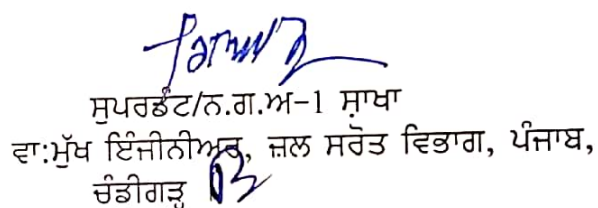 ਸੁਪਰਡੰਟ/ਨ.ਗ.ਅ-1 ਸ਼ਾਖਾ
ਵਾ:ਮੁੱਖ ਇੰਜੀਨੀਅਰ, ਜ਼ਲ ਸਰੋਤ ਵਿਭਾਗ, ਪੰਜਾਬ,
ਚੰਡੀਗੜ੍ਹ